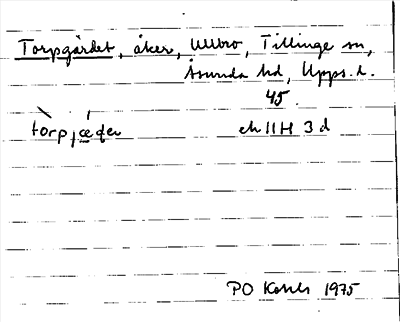 Torpgärdet, åker, Ullbro, Tillinge sn,
Åsunda hd, Upps. l.
45.
torpjæḍeṇ ek 11H 3d
PO 1975